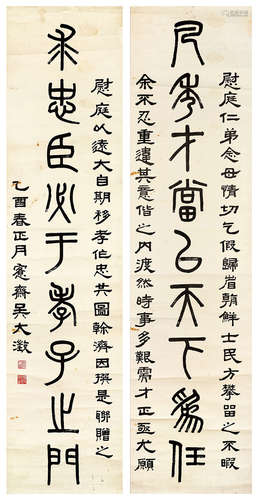 慰庭仁弟念母情切乞假歸省朝鮮士民方攀留之不暇
凡秀才當以天下為任
余不忍重違其意偕之內渡然時事多艱需才正亟尤願
慰庭以遠大自期移孝作忠共圖榦濟因撰是聯贈之
求忠臣必于孝子之門
乙酉春正月愙齋吳大澂